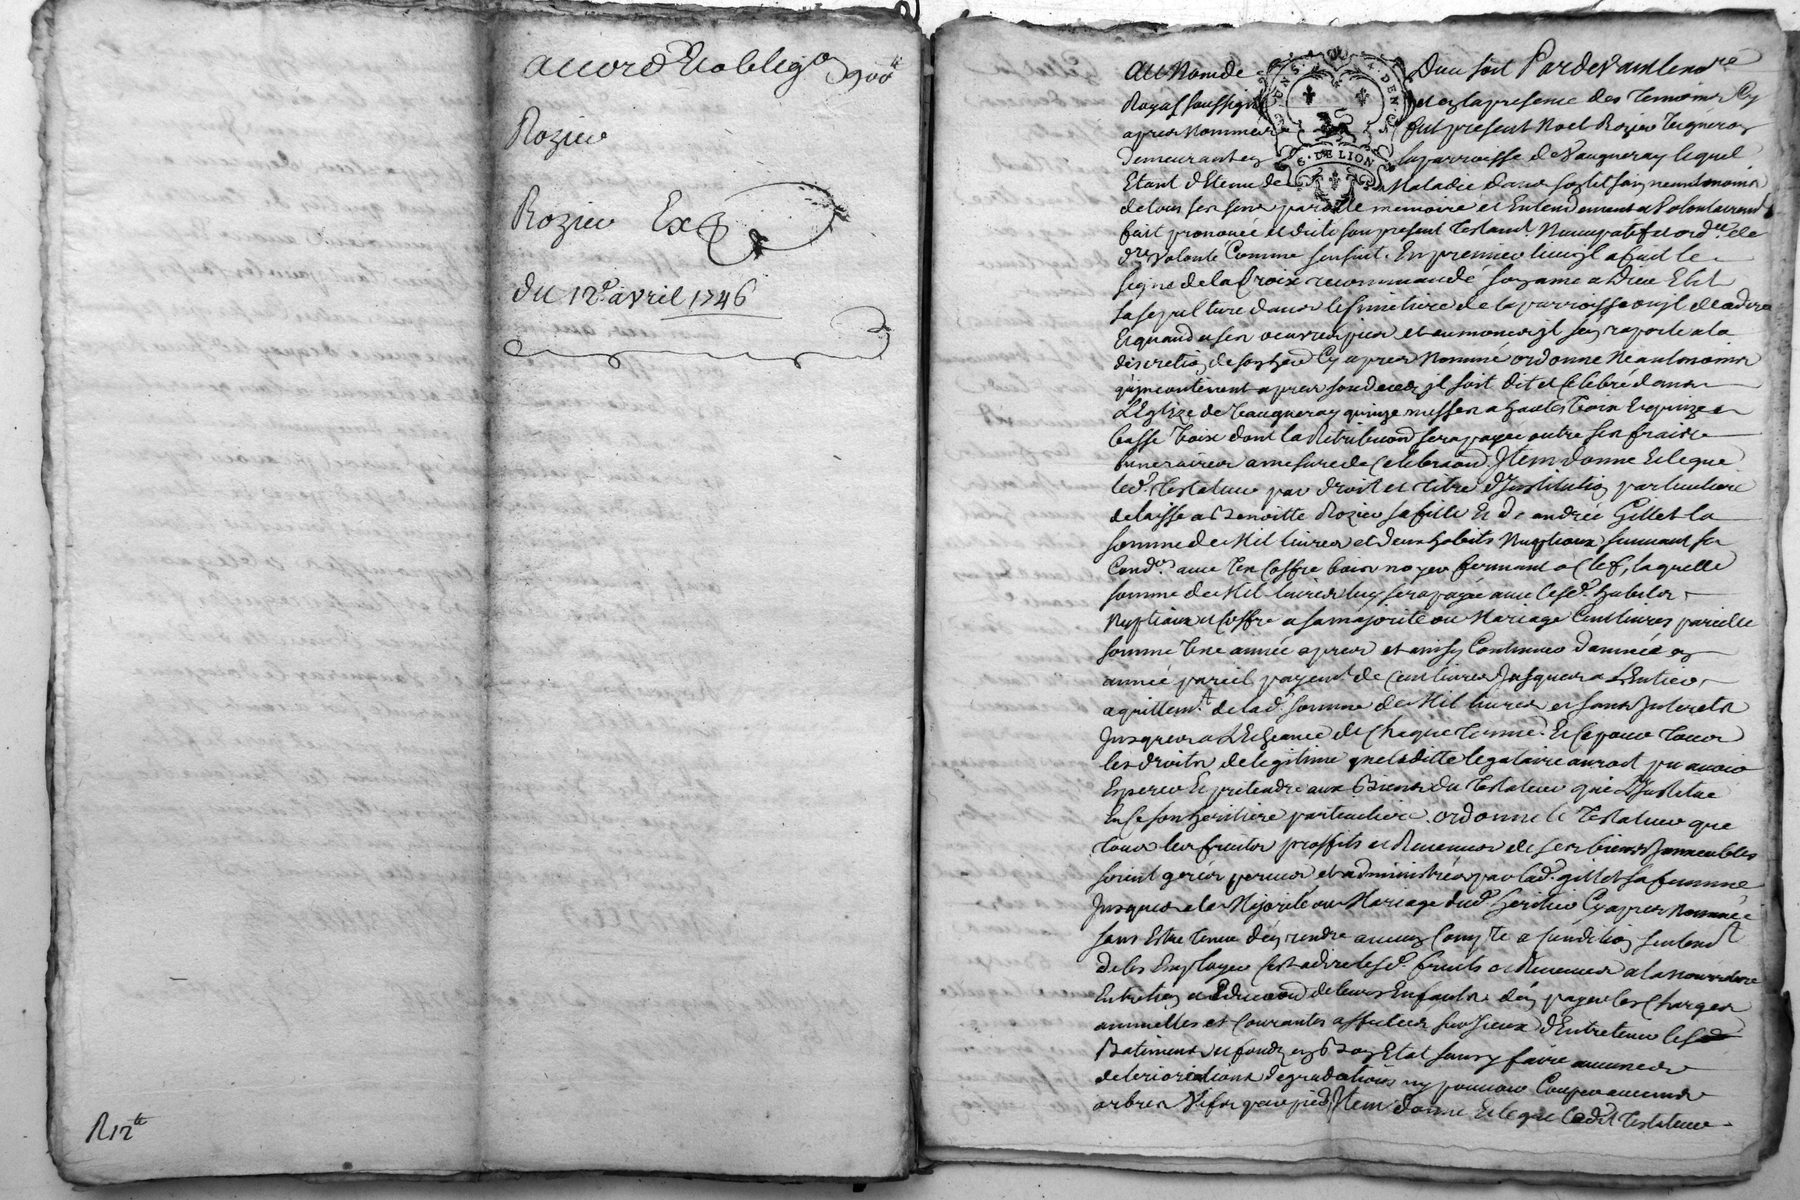 accord et oblig^on 900^tt
Rozier
Rozier Ex
du 12^e avril 1746
R 12^tt
Au Nom de Dieu soit Pardevant le no^re
Royal soussigné et en la presence des Temoins Cy
apres Nommes fut present Noel Rozier Vigneron
demeurant en la parroisse de Vaugneray lequel
Etant detenu de Maladie dans son lit sain neantmoins
de tous ses sens parolle memoire et Entendement a Volontairemt
fait prononcé et dicté son present Testamt. Nuncupatif et ordre. de
dre Volonté Comme sensuit. En premier lieu jl a fait le
signe de la Croix recommandé son ame a Dieu Elit
sa sepulture dans le simetiere de la parroisse ou jl decedera
Et quand a ses oeuvres pies et aumones jl sen raporte a la
discretion de son her Cy apres Nommé ordonne Neantmoins
qujncontinent apres son deces jl soit dit et celebré dans
LEglize de Vaugneray quinze messes a hautes Voix Et quinze a
basse Voix dont la Retribuon sera payée outre ses fraix
funeraires a mesure de Celebraon. Jtem donne Et legue
led. Testateur par droit et titre dJnstitution particuliere
delaisse a Benoitte Rozier sa fille Et de andrée Gillet la
somme de Mil livres et deux habits Nuptiaux suivant sa
Condon. avec Un Coffre bois noyer fermant a Clef, laquelle
somme de Mil livres luy sera payée avec lesd. habits
Nuptiaux et Coffre a sa majorité ou Mariage Cent livres pareille
somme Une année apres et ainsy Continuer dannée en
année pareil payemt. de Cent livres Jusques a LEntier
aquittemt. de lad. somme de Mil livres et sans Jnterets
Jusques a LEcheance de Chaque Terme. Et Ce pour Tous
les droits de legitime que laditte legataire auroit pu avoir
Esperer Et pretendre aux Biens du Testateur qui LJnstitue
En Ce son heritiere particuliere. ordonne le Testateur que
Tous les fruits proffits et Revenus de ses biens Jmmeubles
soient gérés perçus et administrés par lad. gillet sa femme
Jusques a la Majorité ou Mariage dud. heritier Cy apres Nommée
sans Estre Tenue den rendre aucun Compte a Condition seulemt
de les Employer Cest adire lesd. fruits et Revenus a la nourriture
Entretien et Educaon de leurs Enfants den payer les Charges
annuelles et Courantes affectées sur Jceux dEntretenir lesd
Batiments et fonds en Bon Etat sans y faire aucunes
deteriorations degradations ny pouvoir Couper aucuns
arbres Vifs par pied, Jtem donne Et legue ledit Testateur